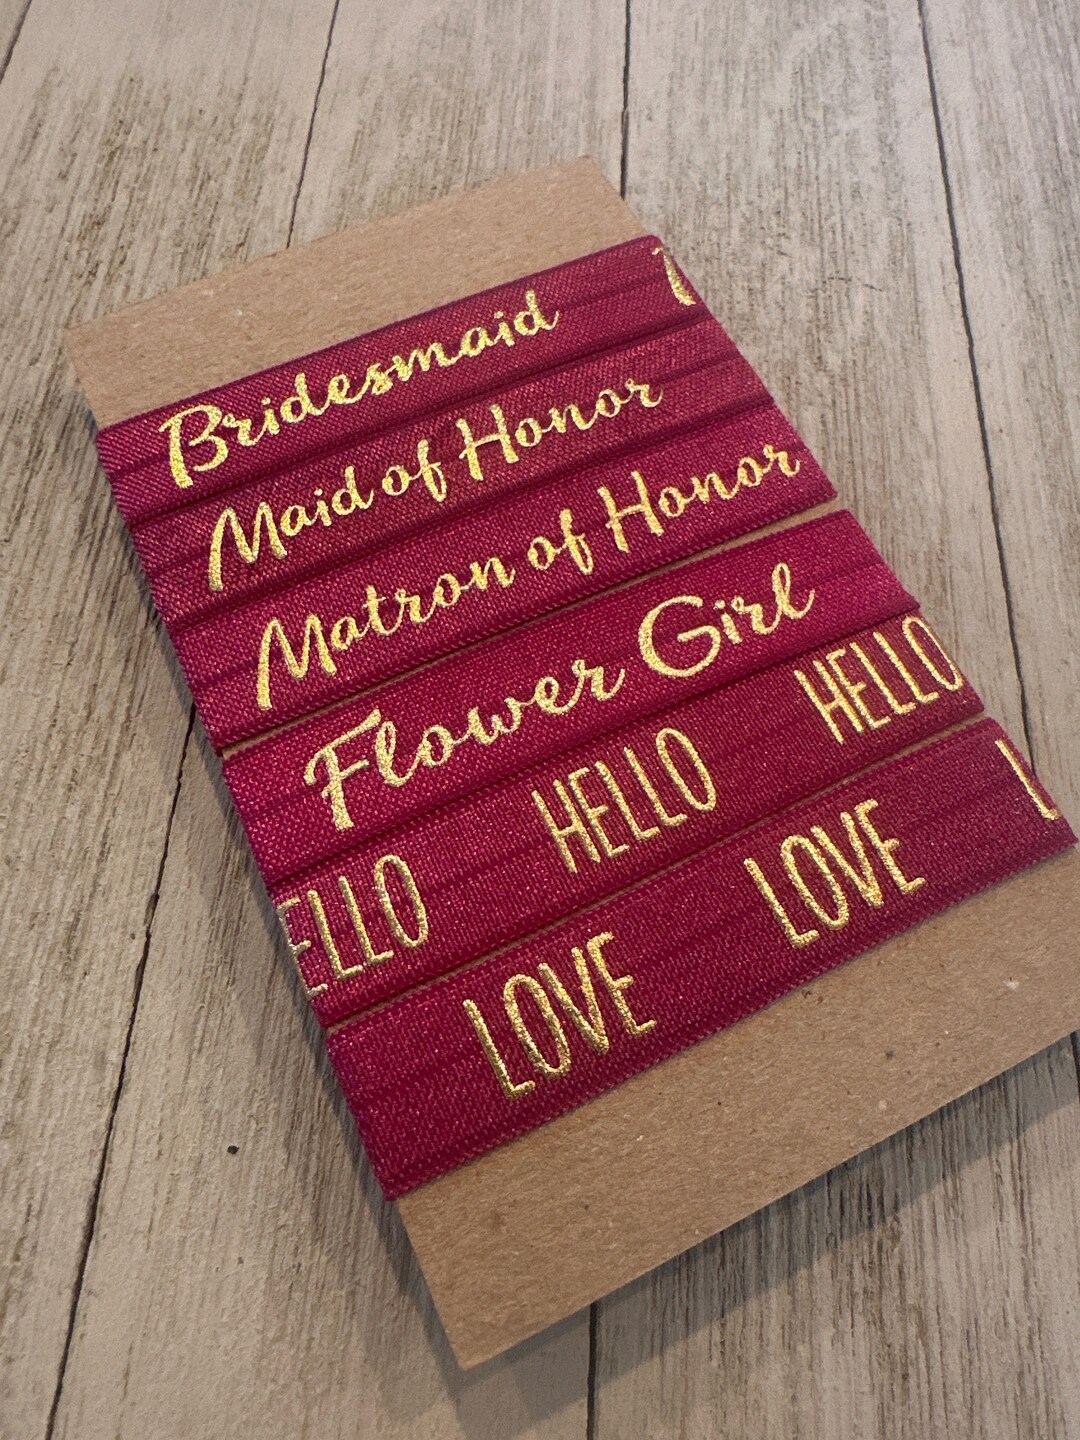 Bridesmaid
Maid of Honor
Matron of Honor
Flower Girl
ELLO HELLO HELLO
LOVE LOVE L